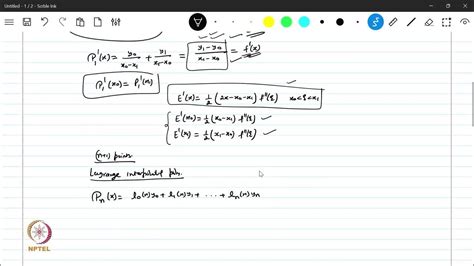 Untitled - 1 / 2 - Scribble Ink
P₁'(x) = y₀/(x₀-x₁) + y₁/(x₁-x₀) = (y₁-y₀)/(x₁-x₀) = f'(x)
P₁'(x₀) = P₁'(x₁)
E'(x) = 1/2 (2x-x₀-x₁) f''(ξ) x₀<ξ<x₁
E'(x₀) = 1/2 (x₀-x₁) f''(ξ) ✓
E'(x₁) = 1/2 (x₁-x₀) f''(ξ) ✓
(n+1) points
Lagrange
Pₙ(x) = l₀(x)y₀ + l₁(x)y₁ + ⋯ + lₙ(x)yₙ
NPTEL